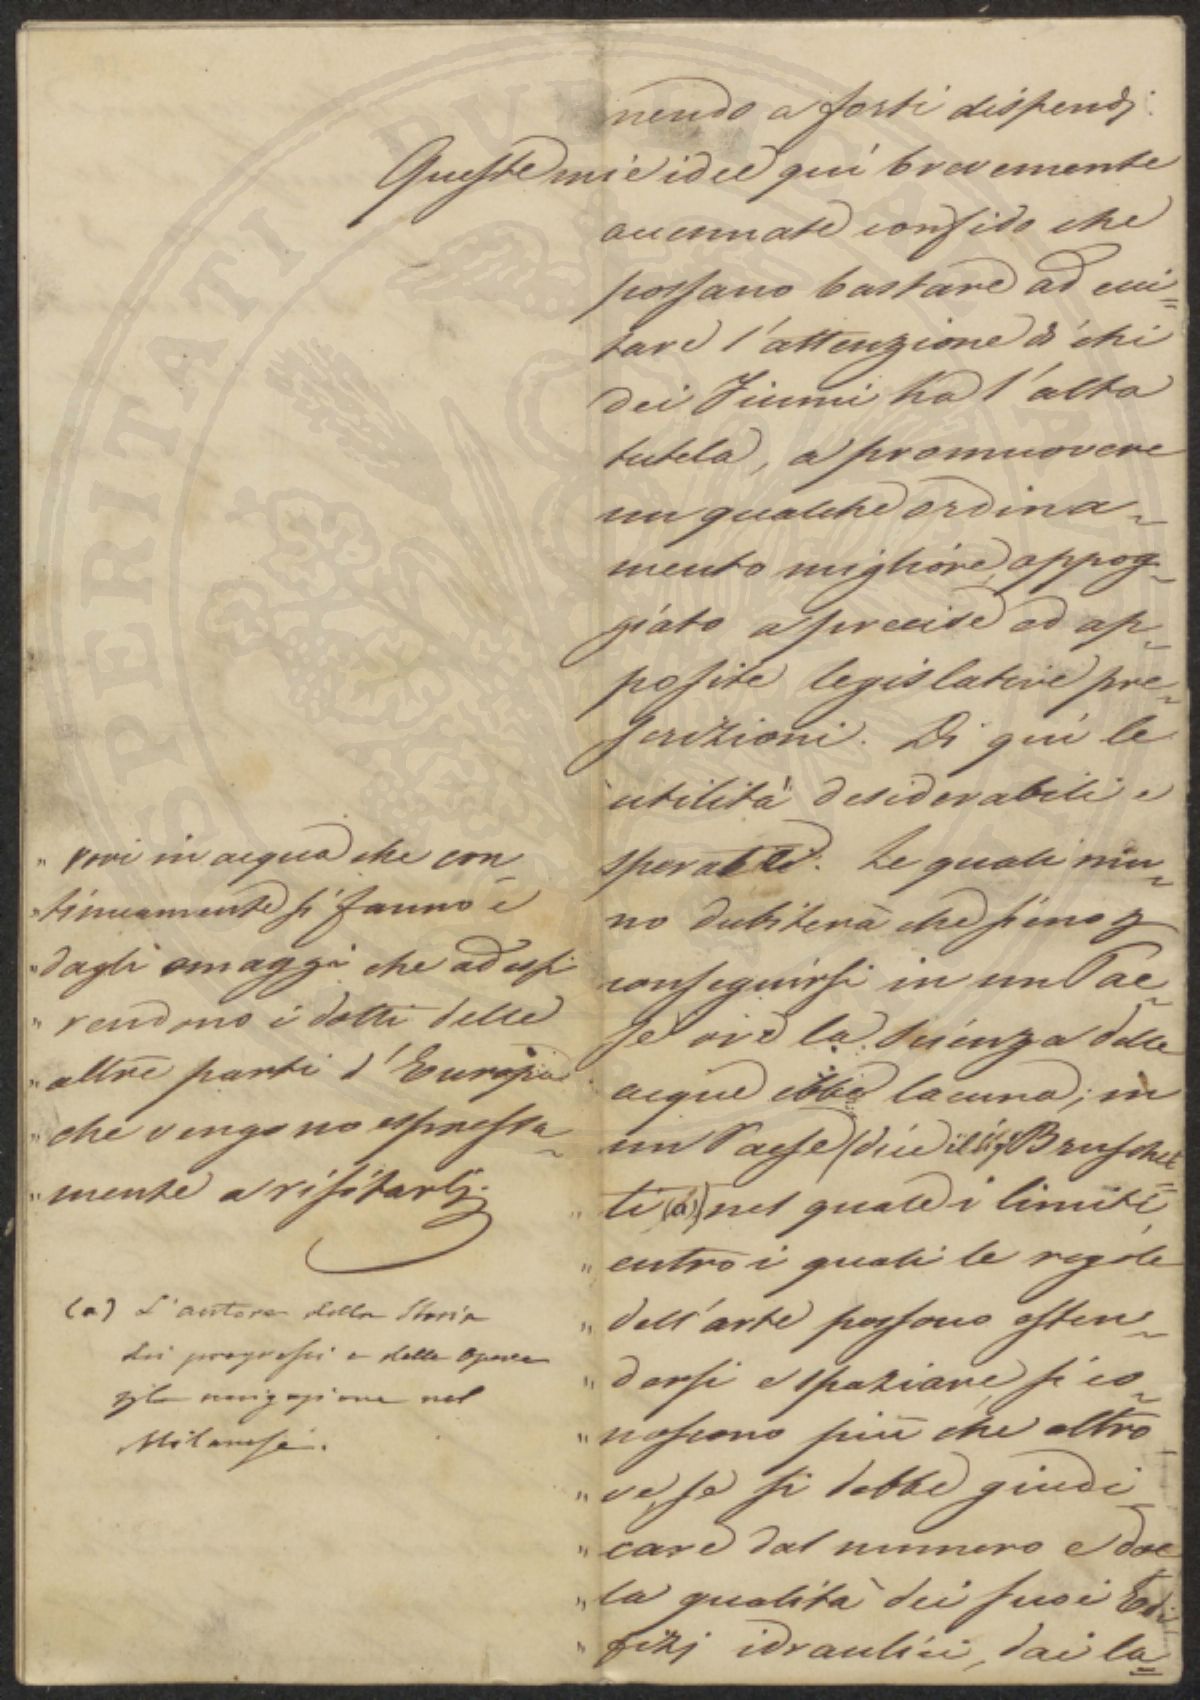 nendo a forti dispendj.
Queste mie idee quì brevemente
accennate confido che
possano bastare ad ecci=
tare l'attenzione di chi
dei Fiumi ha l'alta
tutela, a promuovere
un qualche ordina=
mento migliore, appog=
giato a precise ed ap=
posite legislative pre=
scrizioni. Di quì le
utilità desiderabili e
sperabili. Le quali niu=
no dubiterà che sieno p
conseguirsi in un Pae=
se ove la scienza delle
acque ebbe la cuna; in
un Paese (dice il Sigr Bruschet=
ti (a)) nel quale i limiti,
" entro i quali le regole
" dell'arte possono esten=
" dersi e spaziare, si co=
" noscono più che altro=
" ve, se si debbe giudi=
" care dal numero e dal=
" la qualità dei suoi Edi=
" fizj idraulici, dai la=
" vori in acqua che con=
" tinuamente si fanno e
" dagli omaggi che ad essi
" rendono i dotti delle
" altre parti d'Europa
" che vengono espressa=
" mente a visitarli.
(a) L'autore della Storia
dei progressi e delle opere
navigazione nel
Milanese.
SPERITATI PUBLICAE